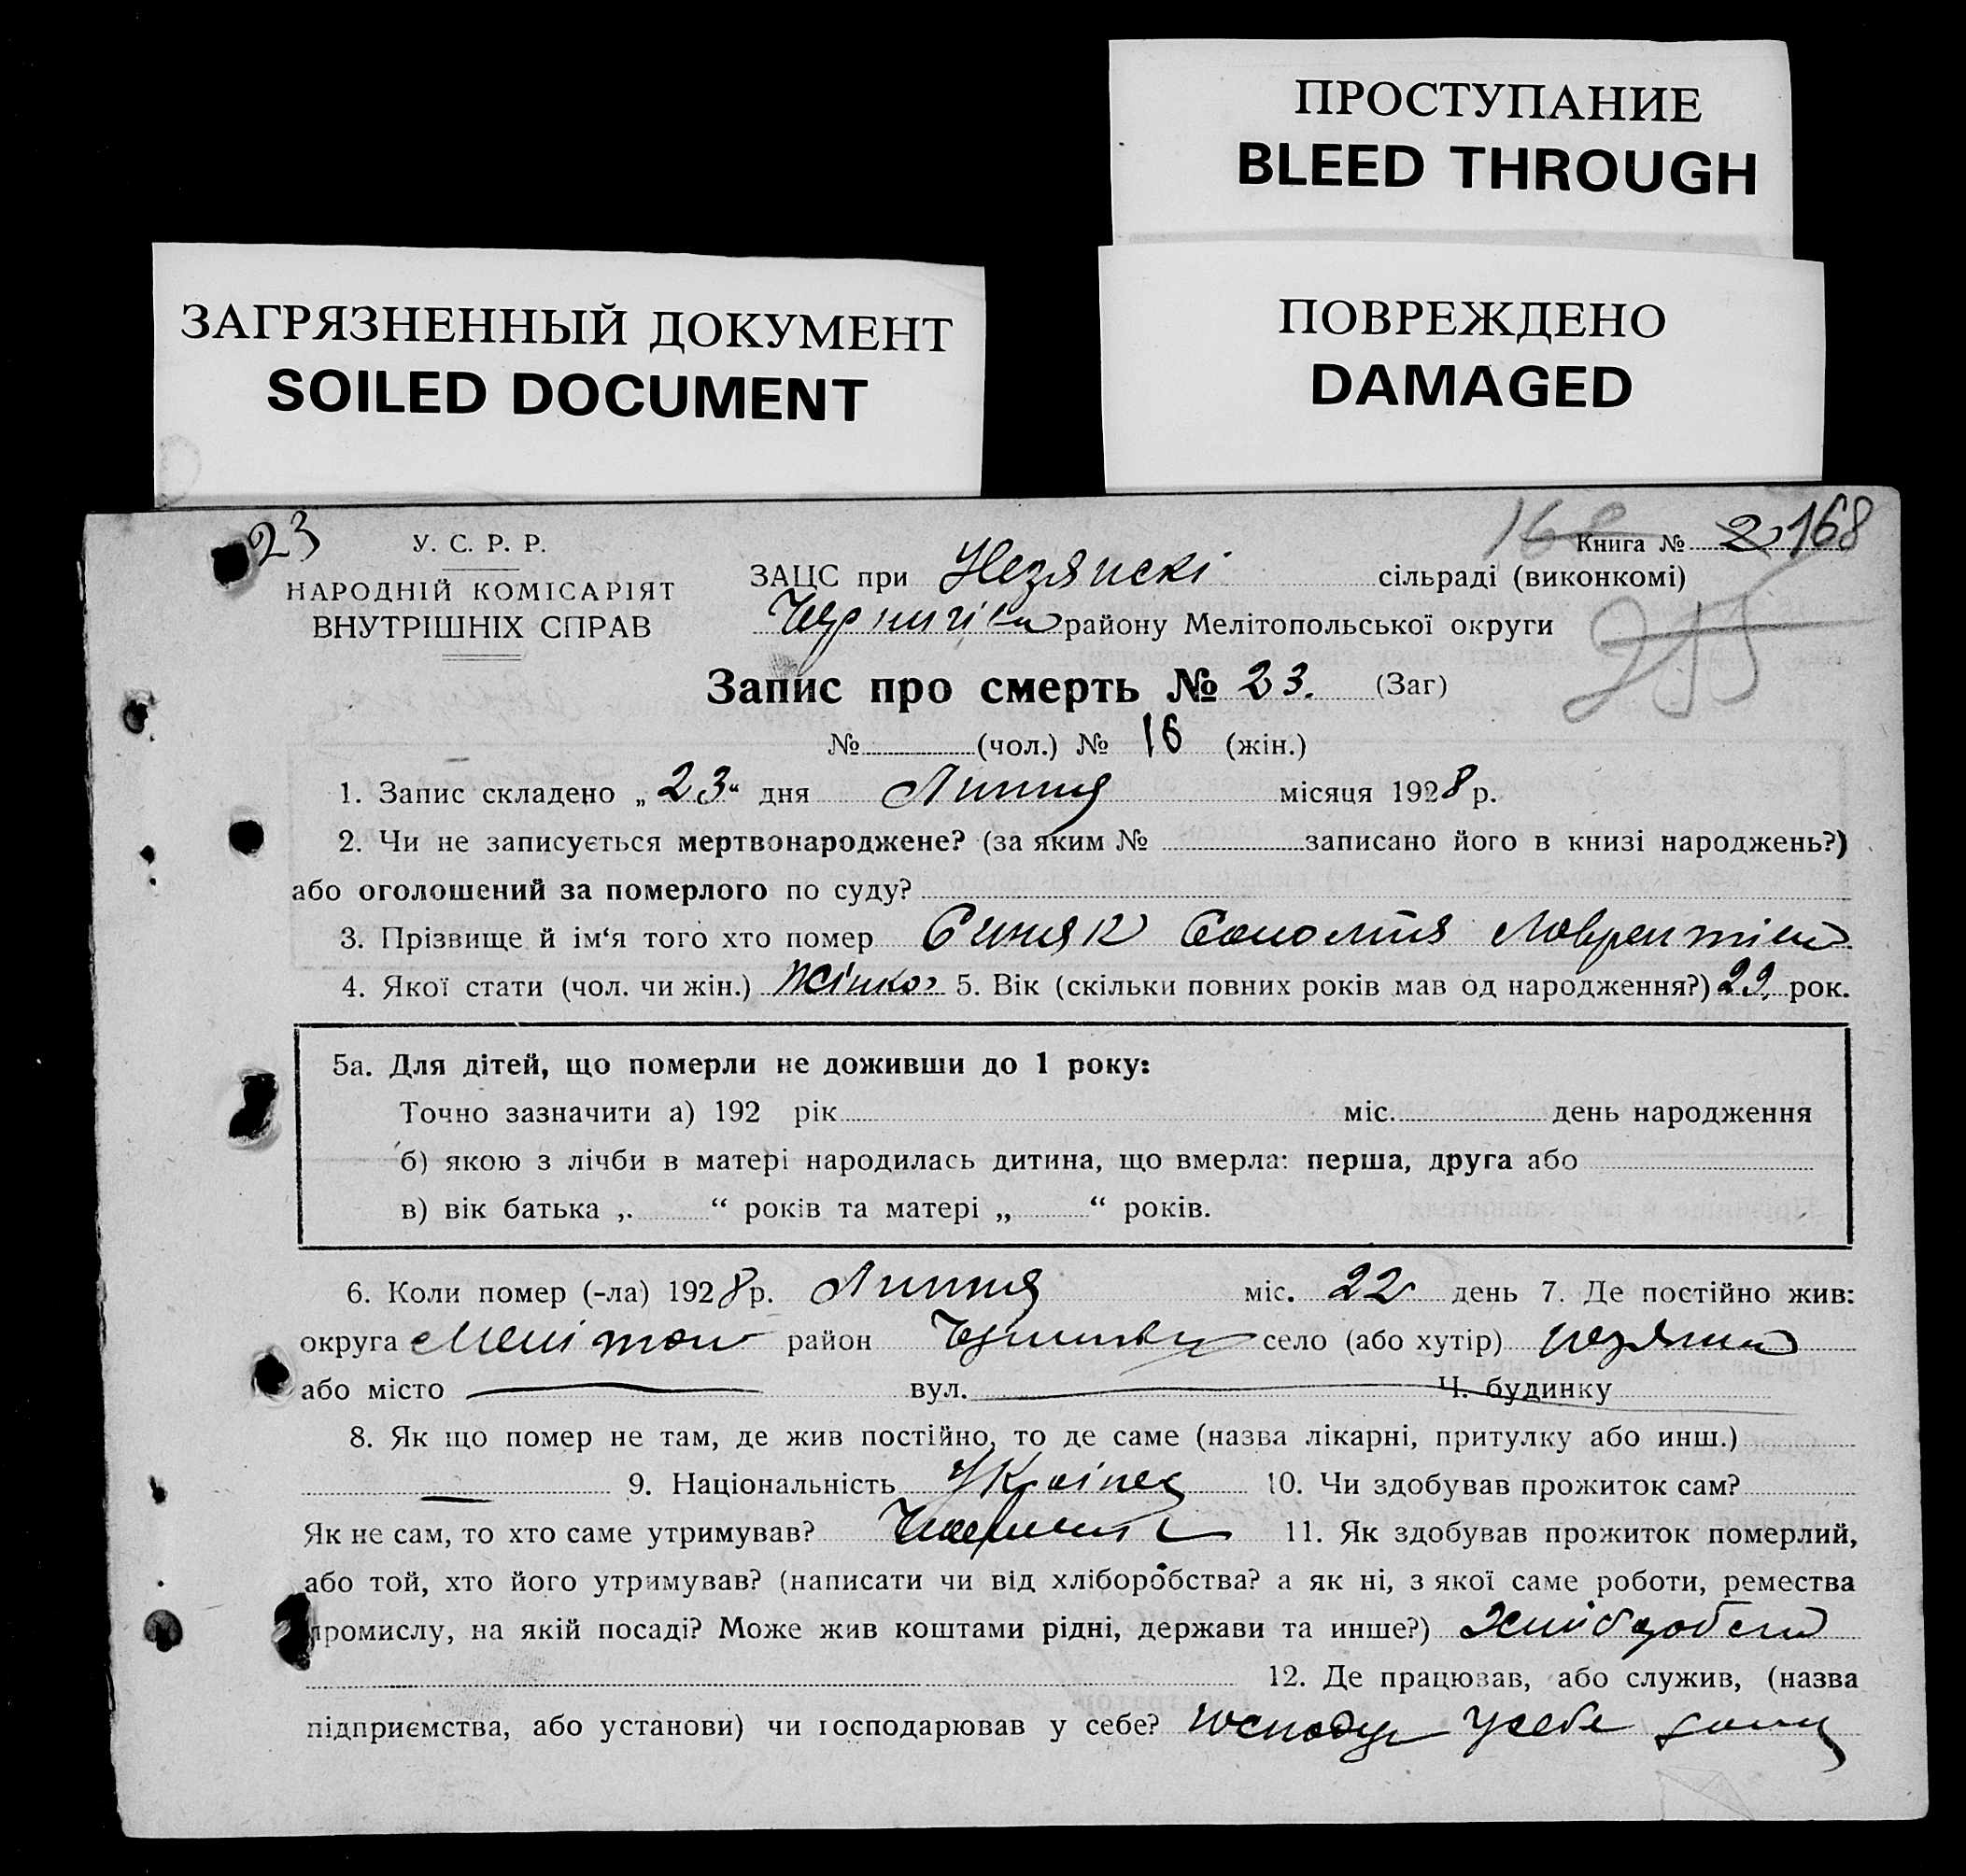 ПРОСТУПАНИЕ
BLEED THROUGH
ЗАГРЯЗНЕННЫЙ ДОКУМЕНТ
SOILED DOCUMENT
ПОВРЕЖДЕНО
DAMAGED
23
168
Книга № 2 168
У. С. Р. Р.
НАРОДНІЙ КОМІСАРІЯТ
ВНУТРІШНІХ СПРАВ
ЗАЦС при сільраді (виконкомі)
району Мелітопольської округи
Запис про смерть № 23. (Заг)
№ (чол.) № 16 (жін.)
1. Запис складено „23“ дня Липня місяця 1928 р.
2. Чи не записується мертвонароджене? (за яким № записано його в книзі народжень?)
або оголошений за померлого по суду?
3. Прізвище й ім‘я того хто помер Синяк
4. Якої стати (чол. чи жін.) Жінка 5. Вік (скільки повних років мав од народження?) рок.
5а. Для дітей, що померли не доживши до 1 року:
Точно зазначити а) 192 рік міс. день народження
б) якою з лічби в матері народилась дитина, що вмерла: перша, друга або
в) вік батька „ “ років та матері „ “ років.
6. Коли помер (-ла) 1928 р. Липня міс. 22 день 7. Де постійно жив:
округа Мелітоп район село (або хутір)
або місто вул. Ч. будинку
8. Як що помер не там, де жив постійно, то де саме (назва лікарні, притулку або инш.)
9. Національність Українец 10. Чи здобував прожиток сам?
Як не сам, то хто саме утримував? 11. Як здобував прожиток померлий,
або той, хто його утримував? (написати чи від хліборобства? а як ні, з якої саме роботи, ремества
промислу, на якій посаді? Може жив коштами рідні, держави та инше?)
12. Де працював, або служив, (назва
підприємства, або установи) чи господарював у себе? у себе дому